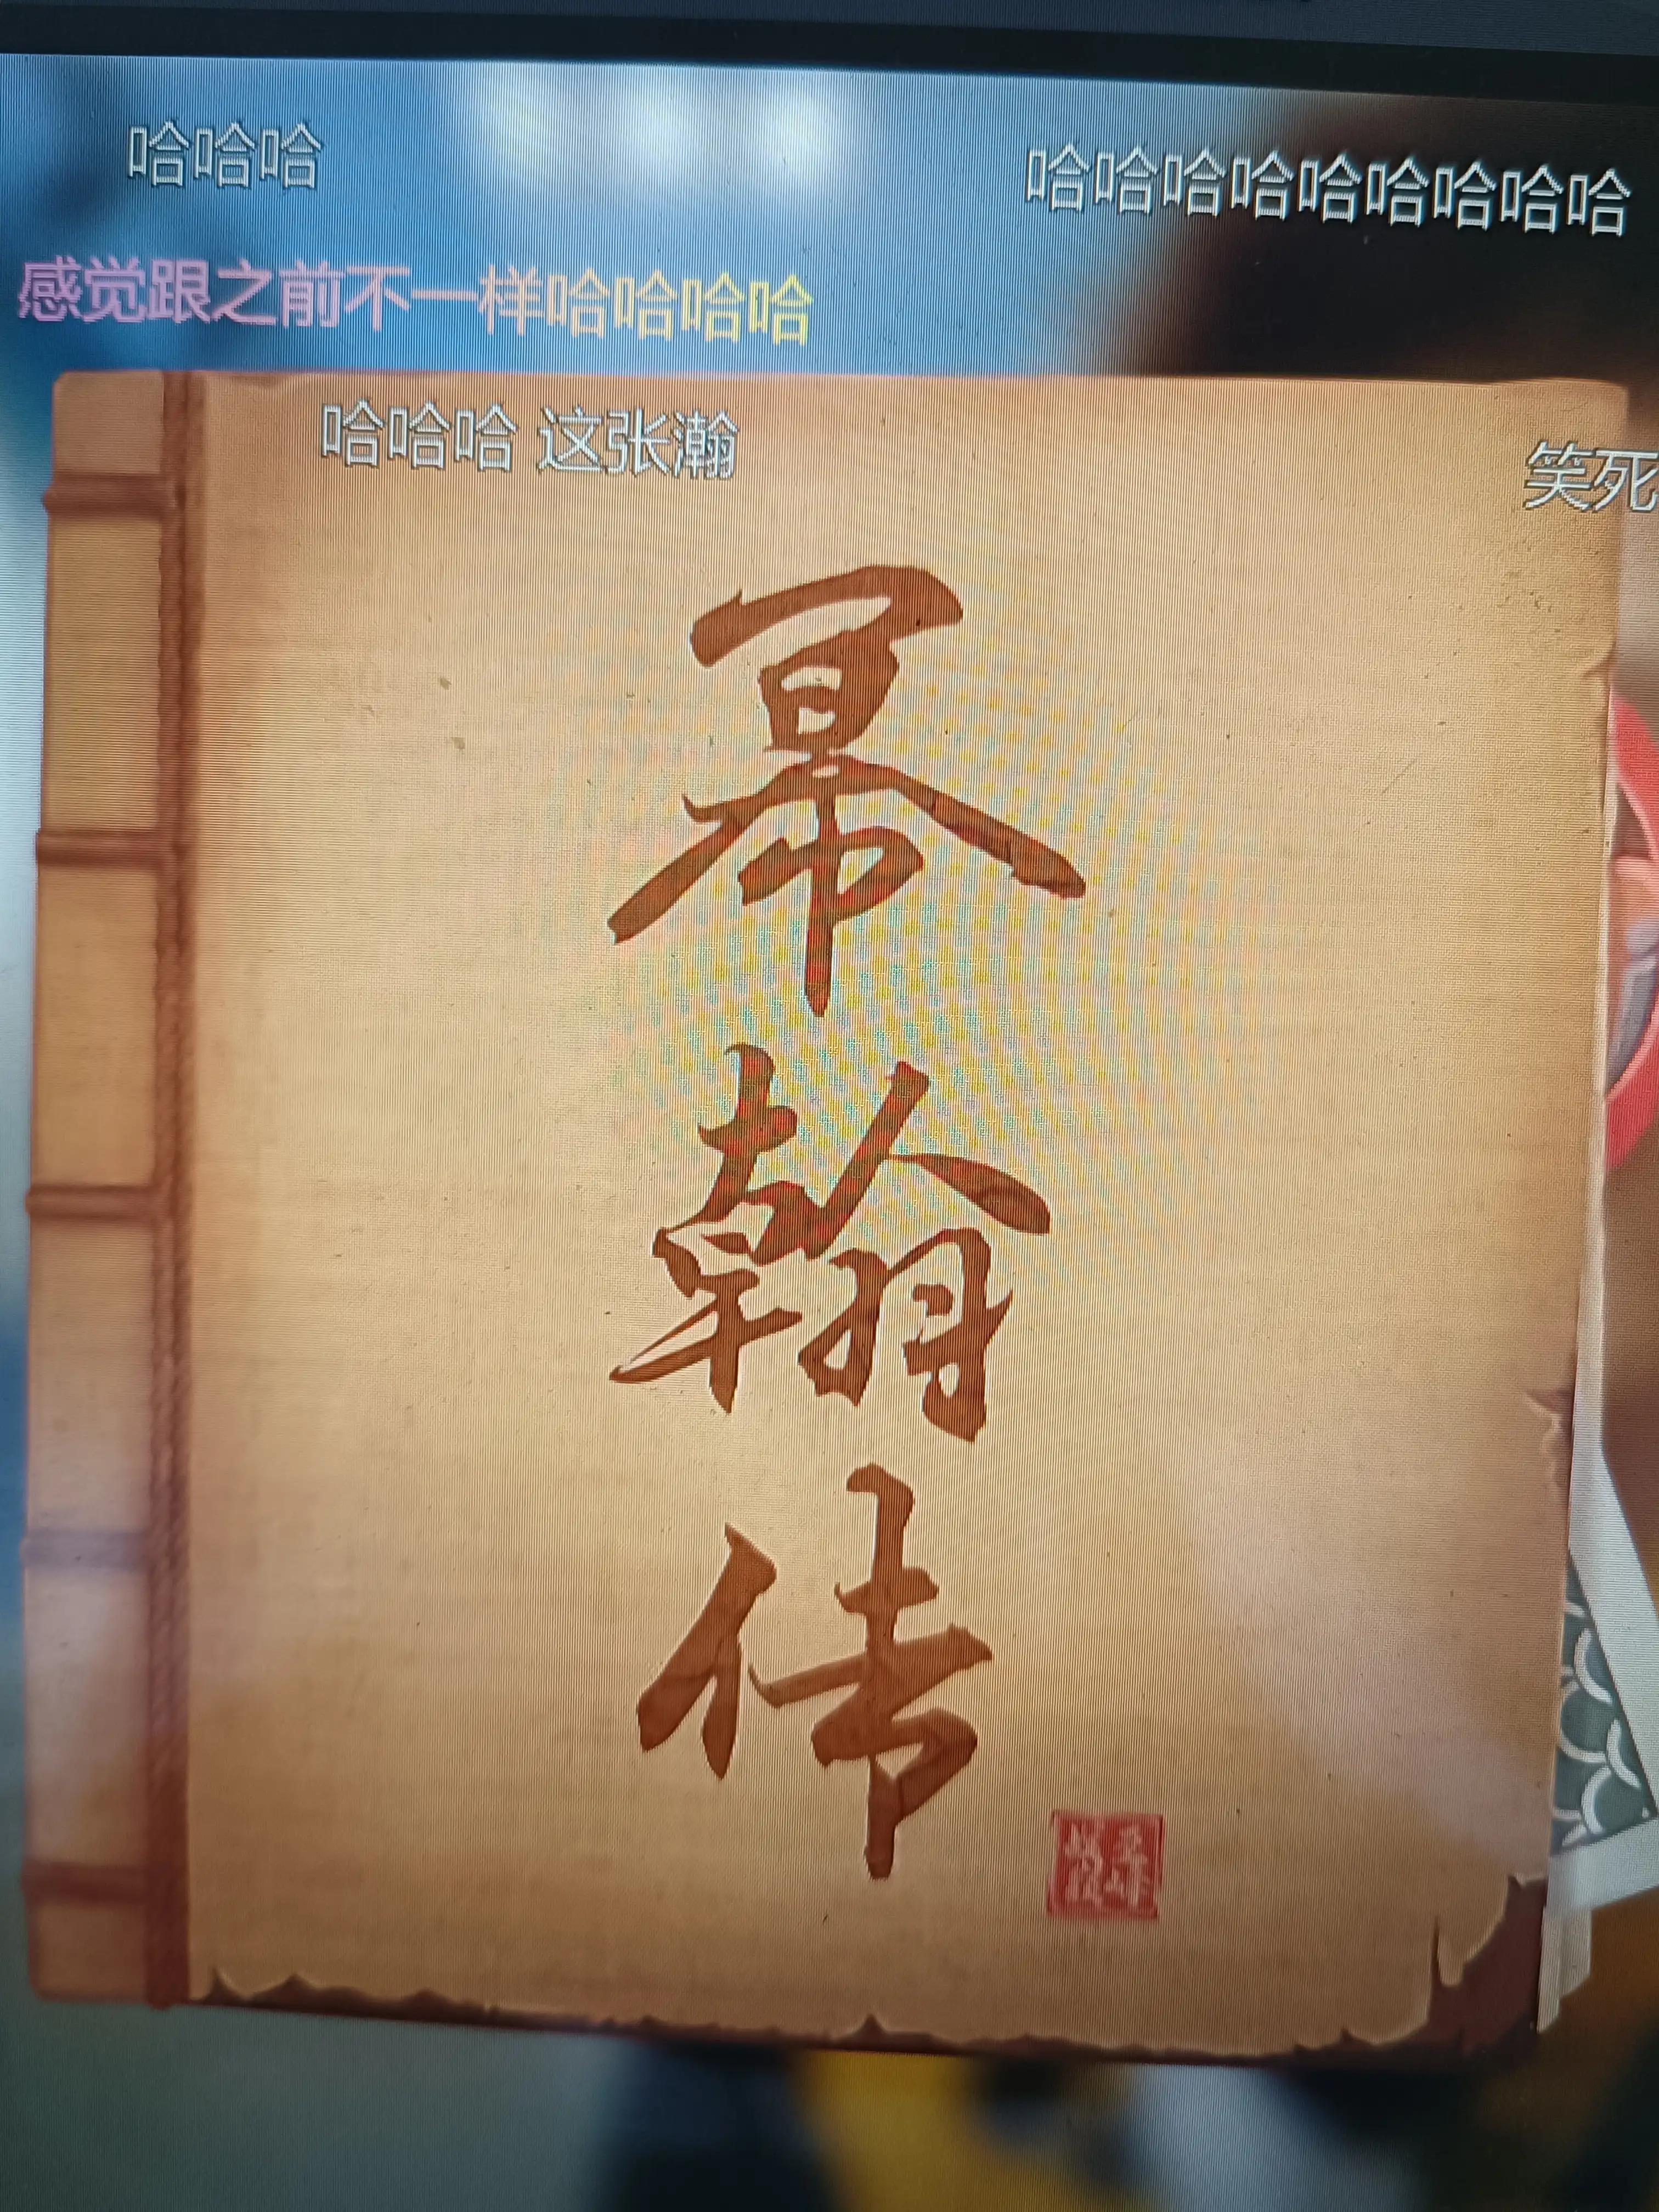 哈哈哈
哈哈哈哈哈哈哈哈哈
感觉跟之前不一样哈哈哈哈
哈哈哈 这张瀚
笑死
幂翰传